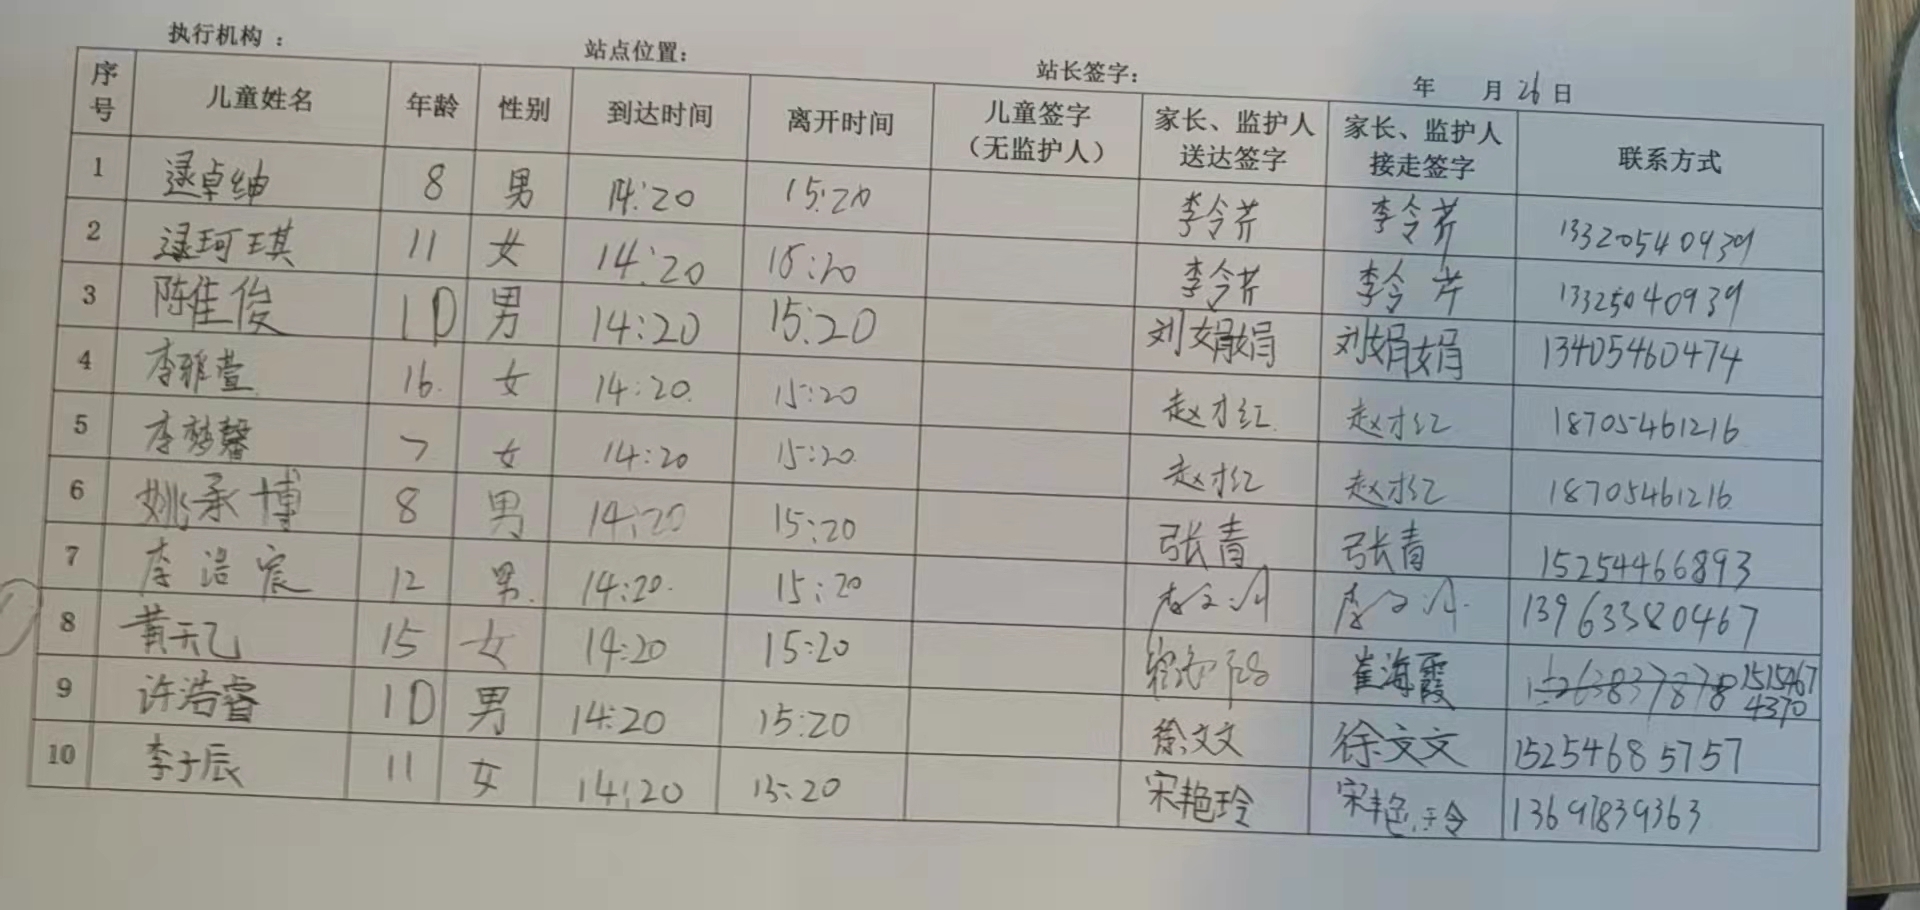 执行机构： 站点位置： 站长签字： 年 月 26 日
序号 儿童姓名 年龄 性别 到达时间 离开时间 儿童签字（无监护人） 家长、监护人送达签字 家长、监护人接走签字 联系方式
1 逯卓绅 8 男 14:20 15:20 李令芹 李令芹 13320540939
2 逯珂琪 11 女 14:20 15:20 李令芹 李令芹 13325040939
3 陈佳俊 10 男 14:20 15:20 刘娟娟 刘娟娟 13405460474
4 李雅萱 16 女 14:20 15:20 赵才红 赵才红 18705461216
5 李梦馨 7 女 14:20 15:20 赵才红 赵才红 18705461216
6 姚承博 8 男 14:20 15:20 张青 张青 15254466893
7 李浩宸 12 男 14:20 15:20 13963380467
8 黄天乙 15 女 14:20 15:20 崔海霞 15154674370
9 许浩睿 10 男 14:20 15:20 徐文文 徐文文 15254685757
10 李子辰 11 女 14:20 15:20 宋艳玲 宋艳玲 13697839363